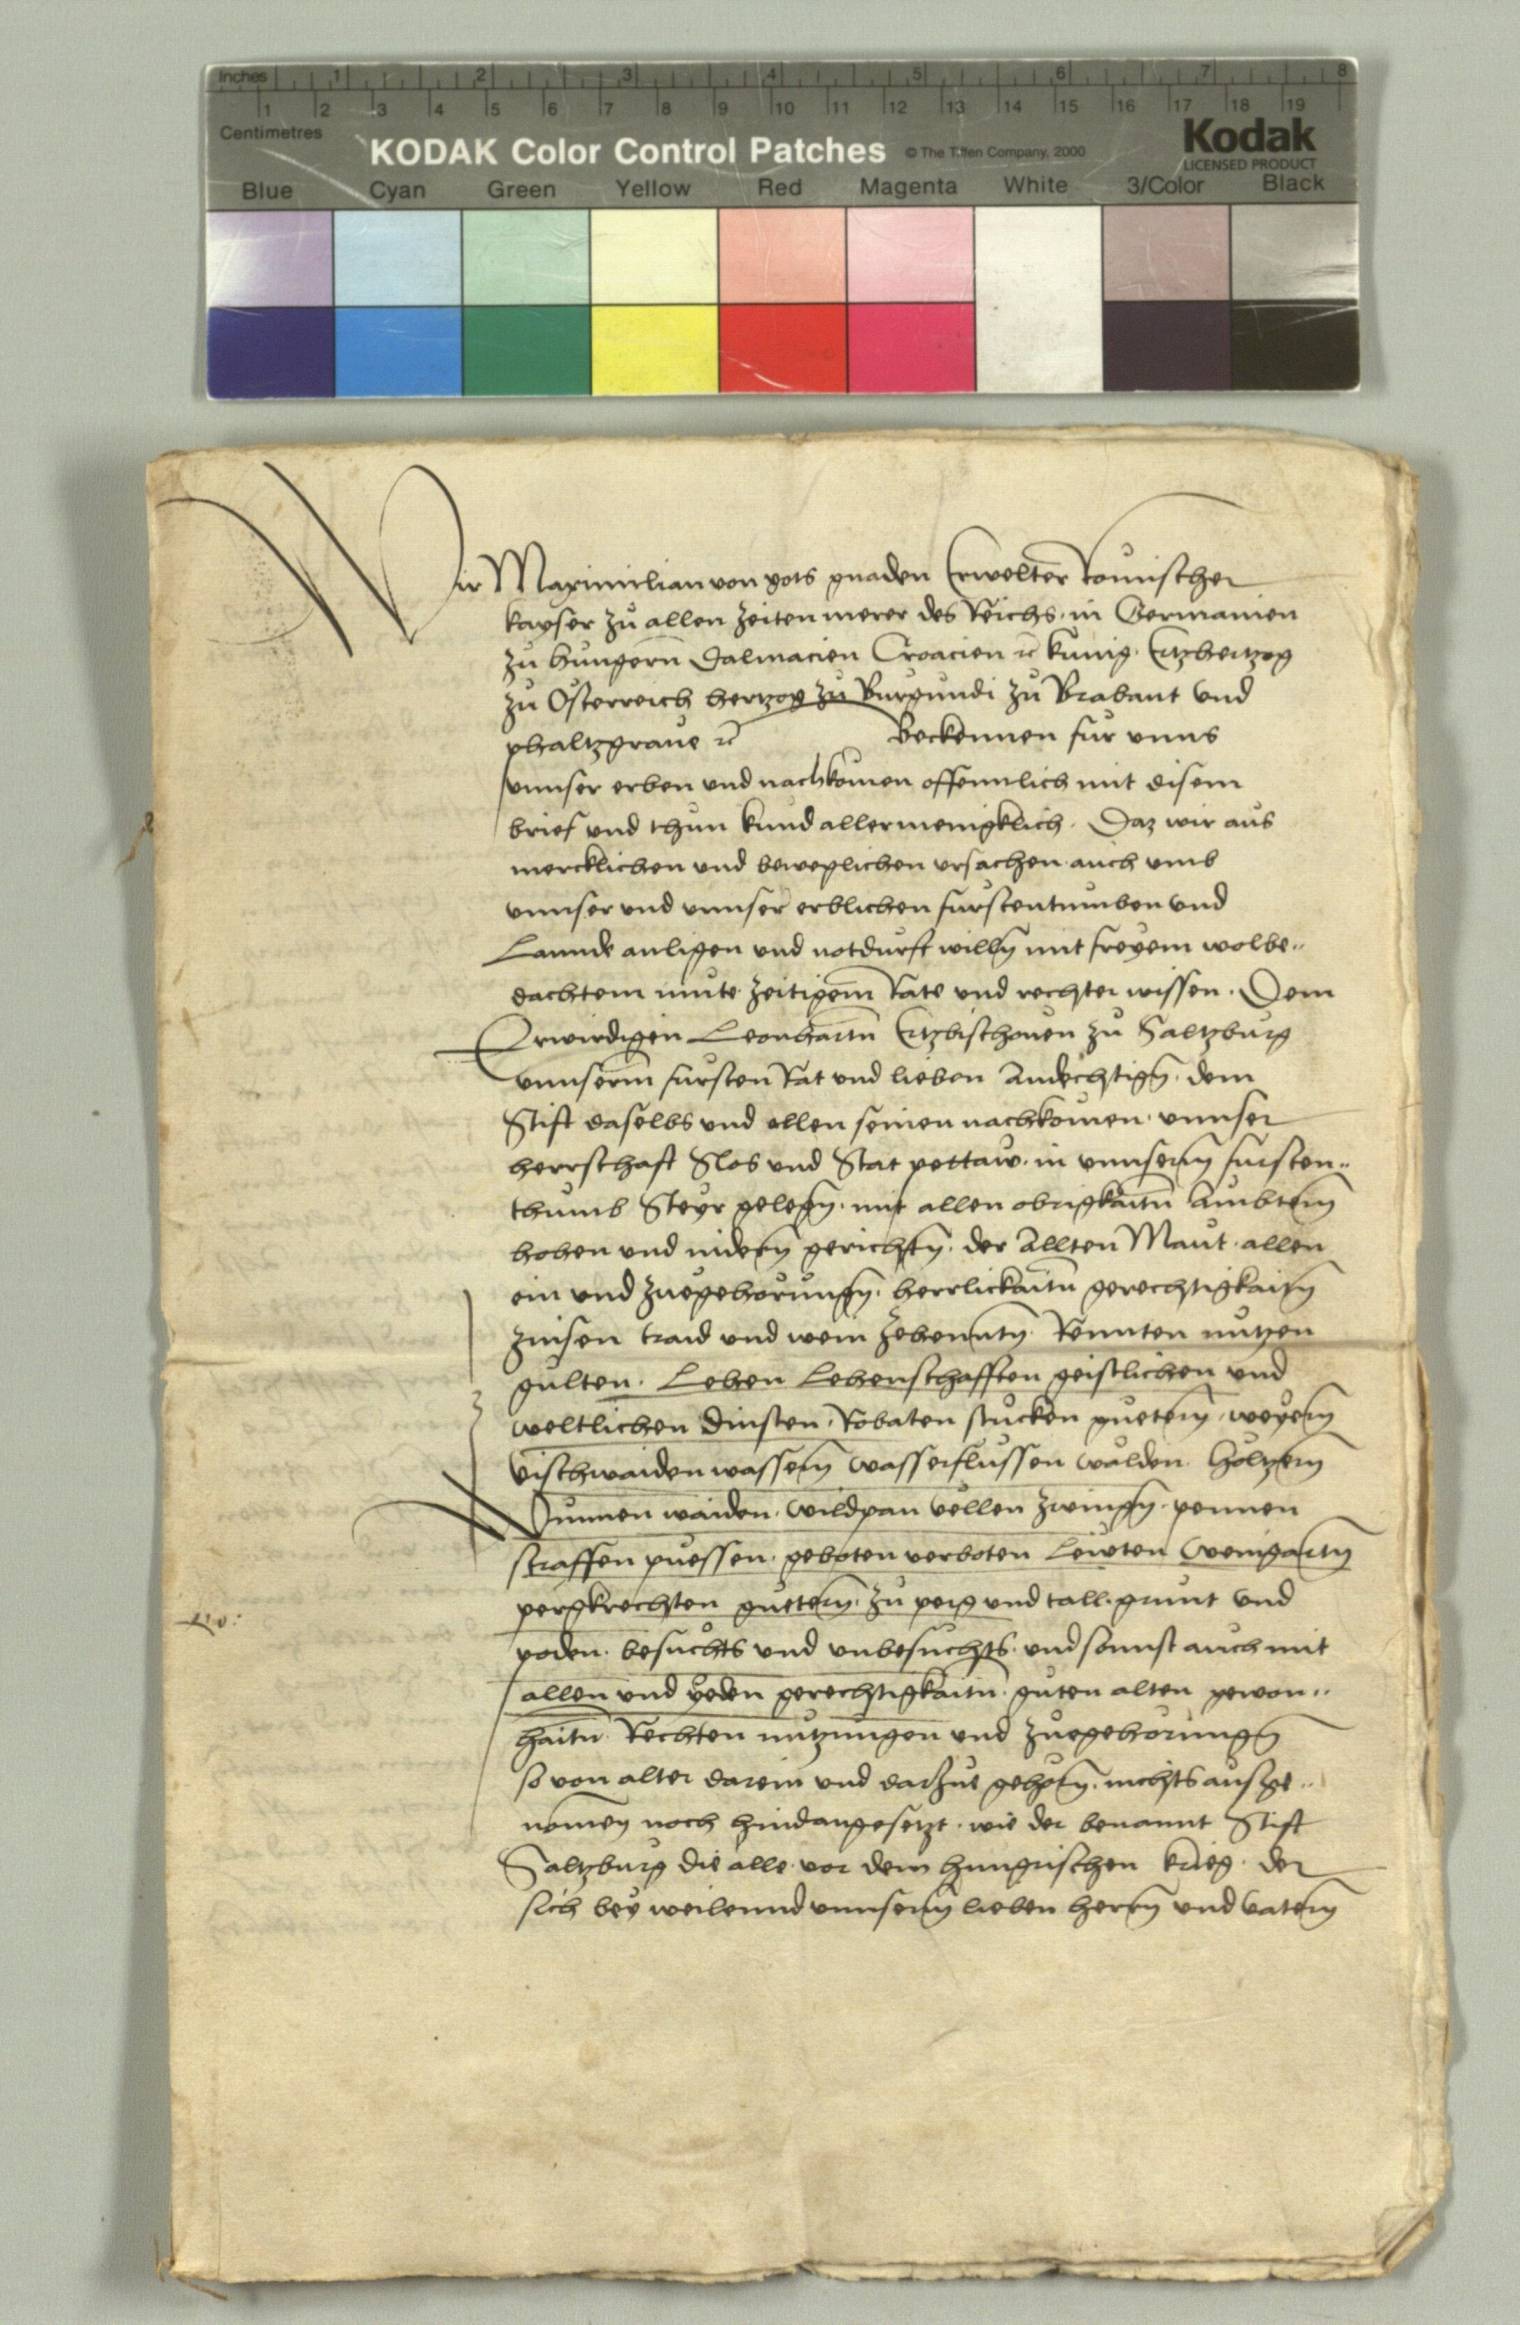 Inches 1 2 3 4 5 6 7 8
1 2 3 4 5 6 7 8 9 10 11 12 13 14 15 16 17 18 19
Centimetres
KODAK Color Control Patches © The Tiffen Company, 2000 Kodak
LICENSED PRODUCT
Blue Cyan Green Yellow Red Magenta White 3/Color Black
Wir Maximilian von gots gnaden Erwelter Romischer
kayser zu allen zeiten merer des Reichs in Germanien
zu hungern Dalmacien Croacien rc kunig Ertzhertzog
zu Osterreich hertzog zu Burgundi zu Brabant und
phaltzgraue rc Bekennen fur unns
unnser erben und nachkomen offennlich mit disem
brief und thun kund allermenigklich. Daz wir aus
mercklichen und beweglichen ursachen auch umb
unnser und unnser erblichen furstentumben und
Lannde anligen und notdurft willn mit freyem wolbe..
dachtem mute zeitigem Rate und rechter wissen. Dem
Erwirdigen Leonhartn Ertzbischouen zu Saltzburg
unnserm fursten Rat und lieben Andechtign dem
Stift daselbs und allen seinen nachkomen unnser
herrschaft Slos und Stat pettaw in unnserm fursten..
thumb Steyr gelegn mit allen obrigkaitn Ambtern
hohen und nidern gerichtn der Allten Maut allen
ein und zuegehorungn herrlickaitn gerechtigkaitn
zinsen traid und wein zehenntn Rennten nutzen
gulten. Lehen Lehenschafften geistlichen und
weltlichen dinsten Robaten stucken guetern weyern
vischwaiden wassern wasserflussen walden holtzern
Wunnen waiden wildpan vellen zwingn pennen
straffen puessen geboten verboten Lewten Weingartn
pergkrechten guetern zu perg und tall grunt und
poden besuchts und unbesuchts und sonnst auch mit
allen und yeden gerechtigkaitn guten alten gewon..
haitn Rechten nutzungen und zuegehorungn
so von alter darein und darzue gehorn nichts ausge..
nomen noch hindangesetzt wie der benannt Stift
Saltzburg die alle vor dem hungrischen krieg der
sich bey weilennd unnserm lieben herrn und vatern